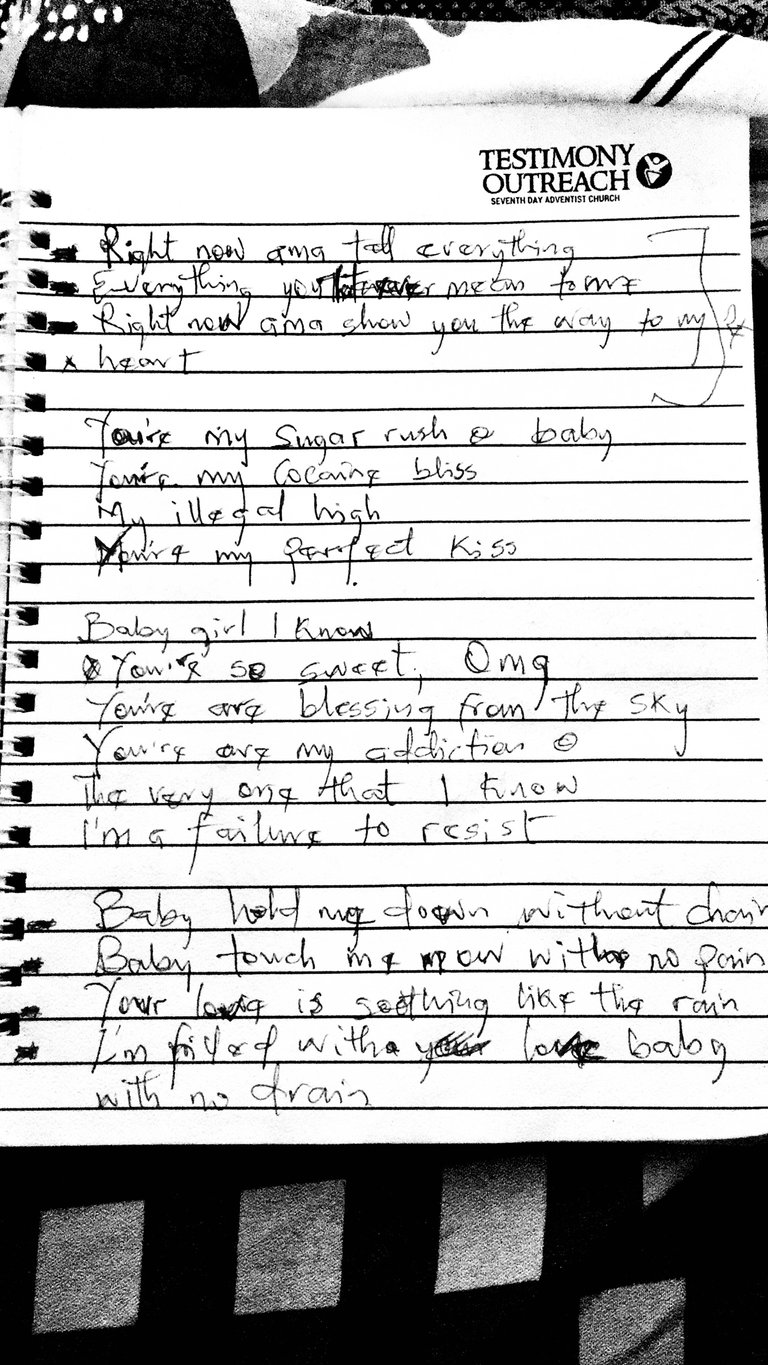 TESTIMONY
OUTREACH
SEVENTH DAY ADVENTIST CHURCH
Right now ama tell everything
Everything you ever mean to me
Right now ama show you the way to my
heart
You're my Sugar rush baby
You're my Cocaine bliss
My illegal high
You're my perfect Kiss
Baby girl I know
You're so sweet, Omg
You're are blessing from the sky
You're are my addiction
The very one that I know
I'm a failure to resist
Baby hold me down without chain
Baby touch me now with no pain
Your love is soothing like the rain
I'm filled with love baby
with no drain